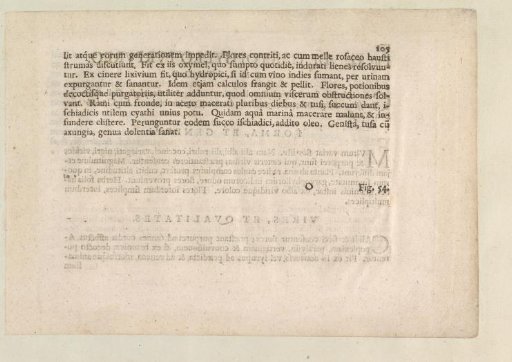 105
lit atque eorum generationem impedit. Flores contriti, ac cum melle rosaceo hausti
strumas discutiunt. Fit ex iis oxymel, quo sumpto quotidie, indurati lienes resolvun-
tur. Ex cinere lixivium fit, quo hydropici, si id cum vino indies sumant, per urinam
expurgantur & sanantur. Idem etiam calculos frangit & pellit. Flores, potionibus
decoctisque purgatoriis, utiliter adduntur, quod omnium viscerum obstructiones sol-
vant. Rami cum fronde, in aceto macerati pluribus diebus & tusi, succum dant, i-
schiadicis utilem cyathi unius potu. Quidam aqua marina macerare malunt, & in-
fundere clistere. Perunguntur eodem succo ischiadici, addito oleo. Genista, tusa cu
axungia, genua dolentia sanat.
O Fig. 54.